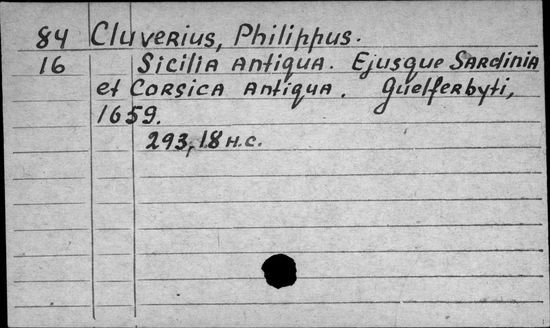 84 Cluverius, Philippus.
16 Sicilia antiqua. Ejusque Sardinia
et Corsica antiqua. Guelferbyti,
1659.
293,18 н.с.